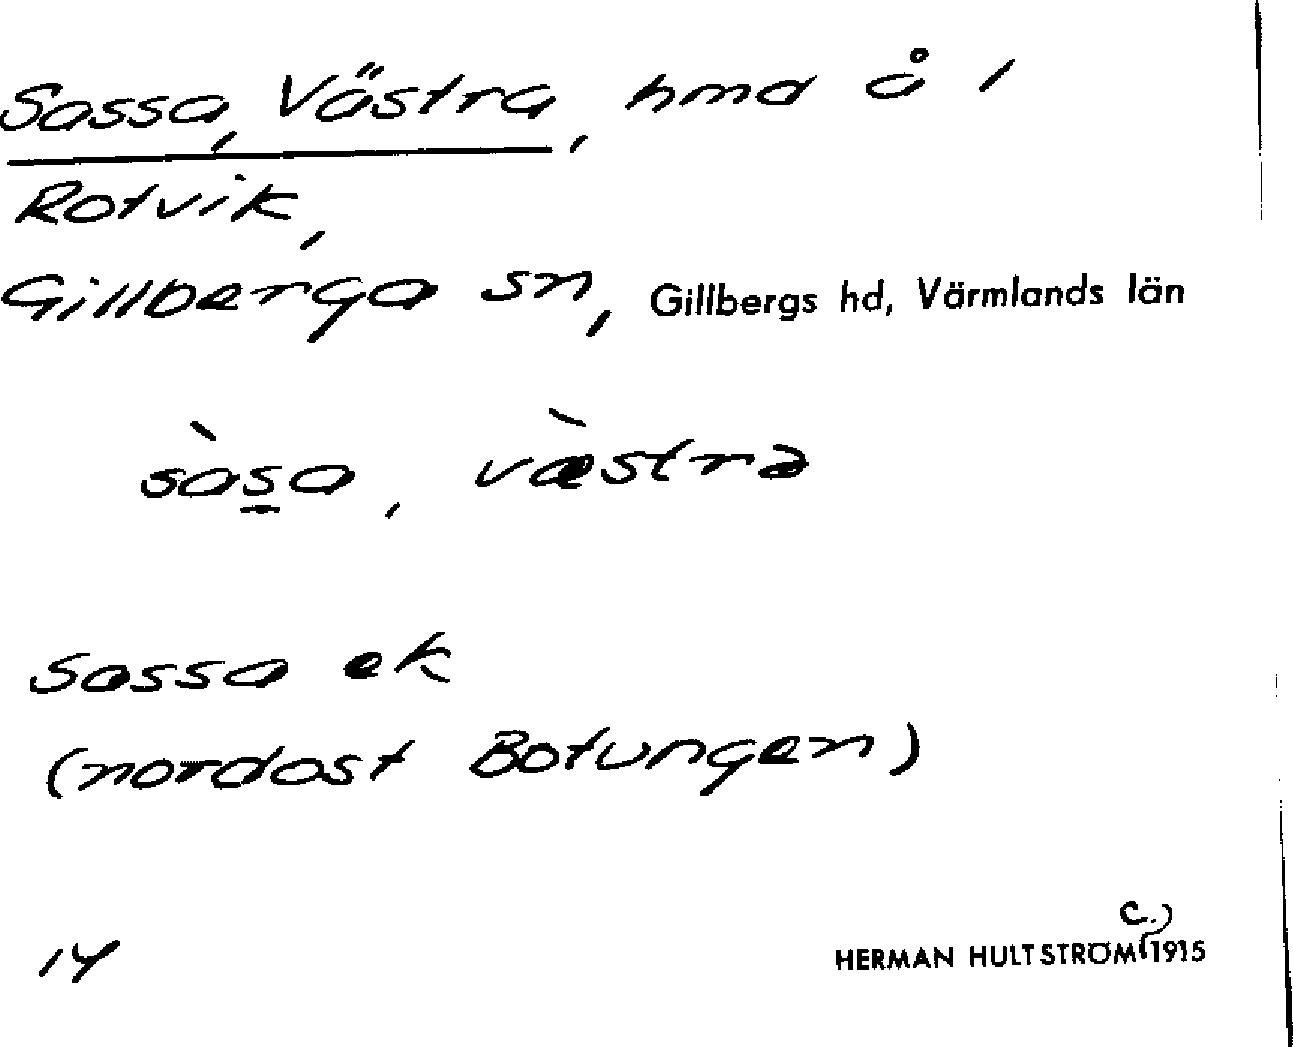 Sassa, Västra, hmd å 1
Rotvik,
Gillberga sn, Gillbergs hd, Värmlands län
sàsa, vàestra
Sassa ek
(nordost Botungen)
14
HERMAN HULTSTRÖM (c.) 1915